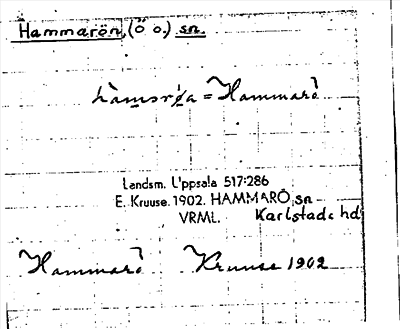 Hammarön, (Ö o.) sn.
= Hammarö
Landsm. Uppsala 517:286
E. Kruuse. 1902. HAMMARÖ sn
VRML. Karlstads hd
Hammarö Kruuse 1902